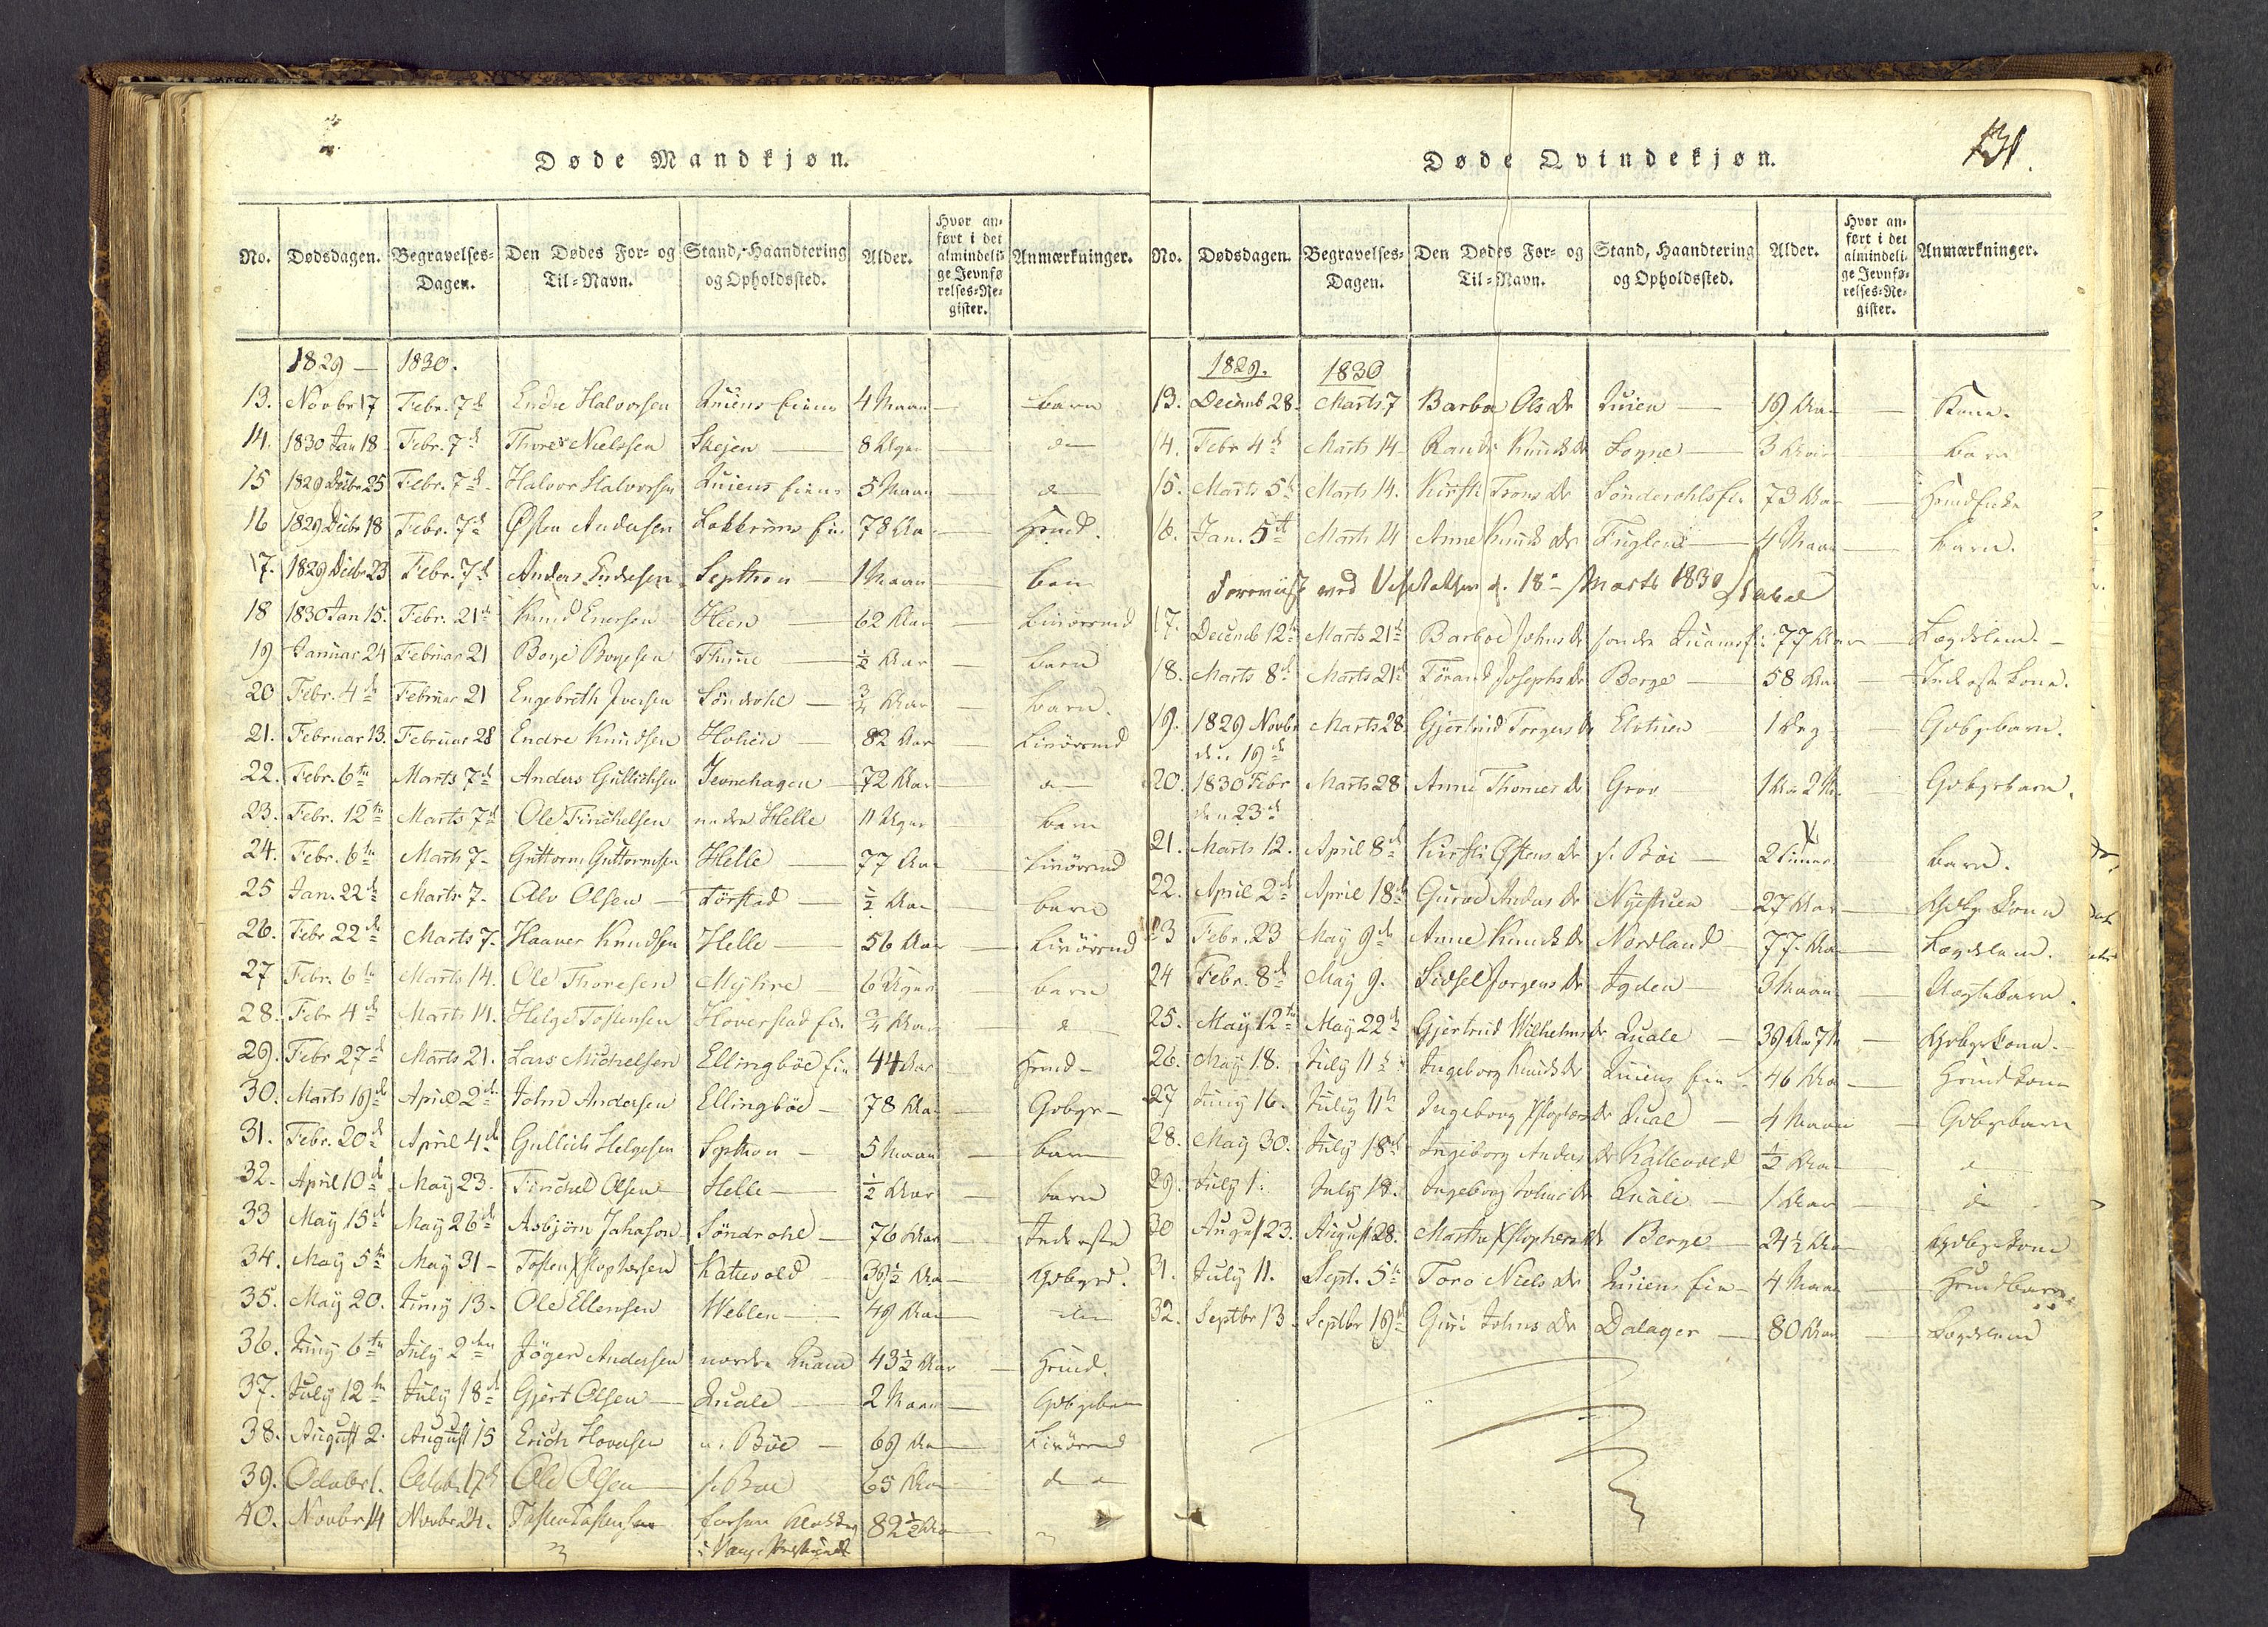 Døde Mandkjøn.
No. Dødsdagen. Begravelses-Dagen. Den Dødes For- og Til-Navn. Stand, Haandtering og Opholdssted. Alder. Hvor anført i det almindelige Jevnførelses-Register. Anmærkninger.
1829 — 1830.
13. Novbr 17 Febr. 7d Endre Halvorsen Quiens 4 Maan — barn
14. 1830 Jan 18 Febr. 7d Thore Nielssen Skejen — 8 Uger
15 1829 Decbr 25 Febr. 7d Halvor Halvorsen Quiens 5 Maan — d
16 1829 Decbr 18 Febr. 7d Østen Andersen 78 Aar
17. 1829 Decbr 23 Febr. 7d Anders Endresen Septhon — 1 Maan — barn
18 1830 Jan 15. Febr. 21d Knud Heen — 62 Aar — Livørsmd
19 Januar 24 Februar 21 Boye Boyesen Thune — ½ Aar — barn
20 Febr. 4d Februar 21 Engebreth Iversen Söndrohl — ¾ Aar — barn.
21. Februar 13. Februar 28 Endre Knudsen — 82 Aar — Livörsmd
22. Febr. 6te Marts 7d Anders Gullichsen Jevnehagen — 72 Aar — d
23. Febr. 12te Marts 7d Ole Finchelsen nedre Helle 11 Uger barn
24. Febr. 6te Marts 7 Guttorm Guttormsen Helle — 77 Aar — Livörsmd
25 Jan. 22d Marts 7. Alv Olsen — Törstad — ½ Aar — barn
26. Febr 22d Marts 7. Haaver Knudsen Helle — 56 Aar — Livörsmd
27 Febr. 6te Marts 14. Ole Thoresen Myhre — 6 Uger — barn
28. Febr 4d Marts 14. Helge Tostensen Höverstad ¾ Aar — d
29. Febr 27d Marts 21. Lars Michelsen Ellingböe 44 Aar —
30. Marts 19d April 2d John Andersen Ellingböe — 78 Aar — Gdbgr —
31. Febr. 20d April 4d Gullich Helgesen Septhon — 5 Maan — barn
32. April 10d May 23. Finchel Olsen Helle — ½ Aar — barn
33 May 15d May 26d Asbjörn Söndrohl — 76 Aar — Inderste
34. May 5te May 31 — Tosten Xstophersen Kattevold 39½ Aar — Gdbgr.
35. May 20. Juny 13. Ole Ellensen Weblen — 49 Aar —
36. Juny 6te July 2den Andersen nordre Quam 43½ Aar —
37. July 12te July 18d Gjert Olsen — Quale — 2 Maan — Gdbgrbarn
38. August 2. August 15 Erich n. Böe — 69 Aar — Livörsmd
39. October 1. Octobr 17d Ole Olsen — s. Böe 65 Aar — d
40. Novbr 14 Novbr 21. Tosten Tostensen 82½ Aar
i Vang Præstegield
Døde Qvindekjøn.
131.
No. Dødsdagen. Begravelses-Dagen. Den Dødes For- og Til-Navn. Stand, Haandtering og Opholdssted. Alder. Hvor anført i det almindelige Jevnførelses-Register. Anmærkninger.
1829. 1830
13. Decemb 28. Marts 7 Barbro Ols Dr Quien — 19 Aar — Kone.
14. Febr 4d Marts 14 Randi Knuds Dr Sogne — 3 — barn
15. Marts 5d Marts 14. Kirsti Dr 73 Aar —
16. Jan. 5te Marts 14 Anne Knuds Dr — 4 Maan — barn.
Foreviist ved Visitatsen d. 18de Marts 1830
17. Decemb 12te Marts 21d Barbro Johns Dr söndre Quams 77 Aar — Lægdslem. —
18. Marts 8d Marts 21d Törand Josephs Dr Berge — 58 Aar — Inderstkone.
19. 1829 Novbr Marts 28 Gjertrud Torgers Dr 1 Dag — Gdbgrbarn.
den 19d
20. 1830 Febr Marts 28 Anne Thomes Dr Grov — — Gdbgrbarn.
den 23d
21. Marts 12. April 8d Kirsti Östens Dr s. Böe — 2 Timer — barn.
22. April 2d April 18d Guroe Anders Dr Nÿestuen — 27 Aar — Gdbgr Kone
23 Febr. 23 May 9d Anne Knuds Dr Nordland — 77 Aar — Lægdslem.
24 Febr. 8d May 9. Sidsel Jörgens Dr Agden — 3 Maan — Uægtebarn.
25. May 12te May 22d Gjertrud Wilhelms Dr Quale — 39 Aar 7 M — Gdbgrkone. —
26. May 18. July 11te Ingeborg Knuds Dr Quiens 46 Aar —
27 Juny 16. July 11te Ingeborg Xstophers Dr Quale — 4 Maan — Gdbgrbarn
28. May 30. July 18d Ingeborg Anders Dr Kattevold ½ Aar — d
29. July 1. July 18. Ingeborg Johns Dr Quale — 1 Aar — d
30 August 23. August 28. Marthe Xstophers Dr Berge — 24½ Aar — Gdbgrkone
31. July 11. Sept. 5te Toro Niels Dr Quiens 4 Maan —
32. Septbr 13. Septbr 19d Guri Johns Dr Dalager — 80 Aar — Lægdslem